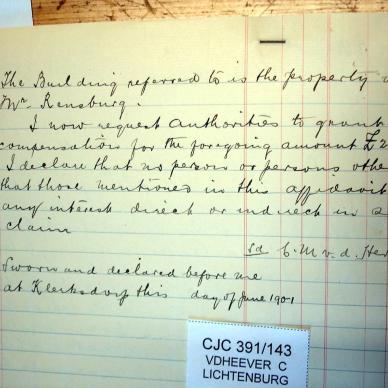 The Building referred to is the property
Mr. Rensburg.
I now request Authorities to grant
compensation for the foregoing amount £2
I declare that no person or persons othe
that those mentioned in this affidavit
any interest direct or indirect in a
claim
sd C. M. v. d. Hee
Sworn and declared before me
at Klerksdorp this day of June 1901
CJC 391/143
VDHEEVER C
LICHTENBURG